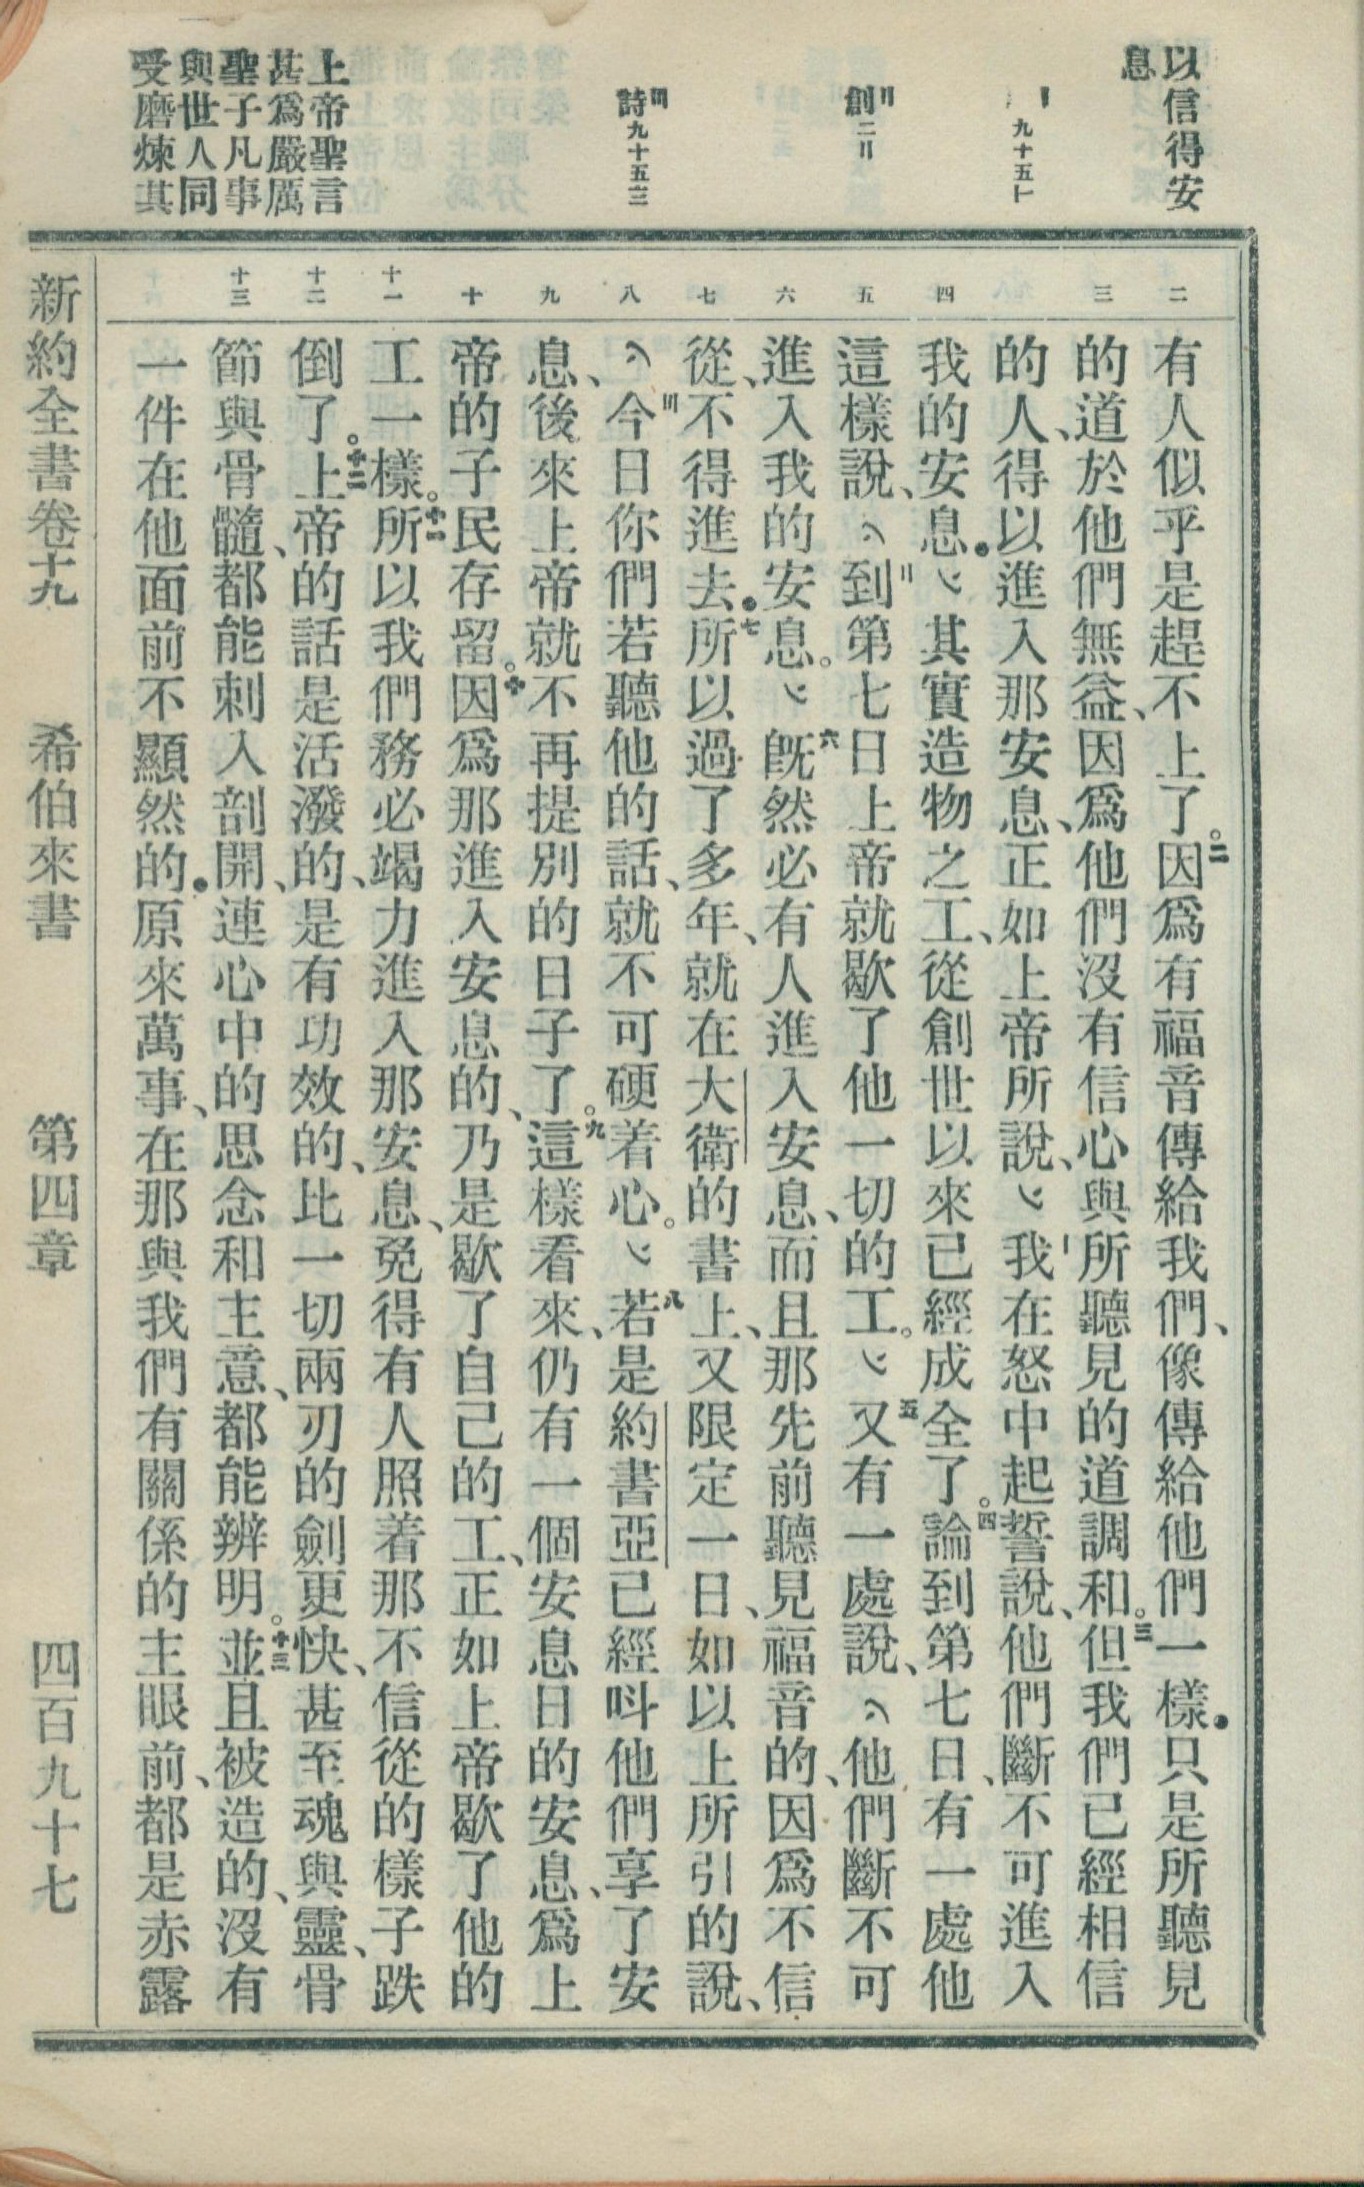 以信得安
息
九十五
創二
詩九十五
上帝聖言
甚爲嚴厲
聖子凡事
與世人同
受磨煉其
二 三 四 五 六 七 八 九 十 十一 十二 十三
有人似乎是趕不上了。二因爲有福音傳給我們、像傳給他們一樣.只是所聽見
的道於他們無益、因爲他們沒有信心與所聽見的道調和。三但我們已經相信
的人、得以進入那安息、正如上帝所說、我在怒中起誓說、他們斷不可進入
我的安息.其實造物之工、從創世以來已經成全了。四論到第七日、有一處他
這樣說、到第七日上帝就歇了他一切的工。五又有一處說、他們斷不可
進入我的安息。六旣然必有人進入安息、而且那先前聽見福音的、因爲不信
從、不得進去.七所以過了多年、就在大衛的書上、又限定一日、如以上所引的說、
今日你們若聽他的話、就不可硬着心。八若是約書亞已經呌他們享了安
息、後來上帝就不再提別的日子了。九這樣看來、仍有一個安息日的安息、爲上
帝的子民存留。十因爲那進入安息的、乃是歇了自己的工、正如上帝歇了他的
工一樣。十一所以我們務必竭力進入那安息、免得有人照着那不信從的樣子跌
倒了。十二上帝的話是活潑的、是有功效的、比一切兩刃的劍更快、甚至魂與靈、骨
節與骨髓、都能刺入剖開、連心中的思念和主意、都能辨明。十三並且被造的、沒有
一件在他面前不顯然的.原來萬事、在那與我們有關係的主眼前、都是赤露
新約全書卷十九 希伯來書 第四章 四百九十七